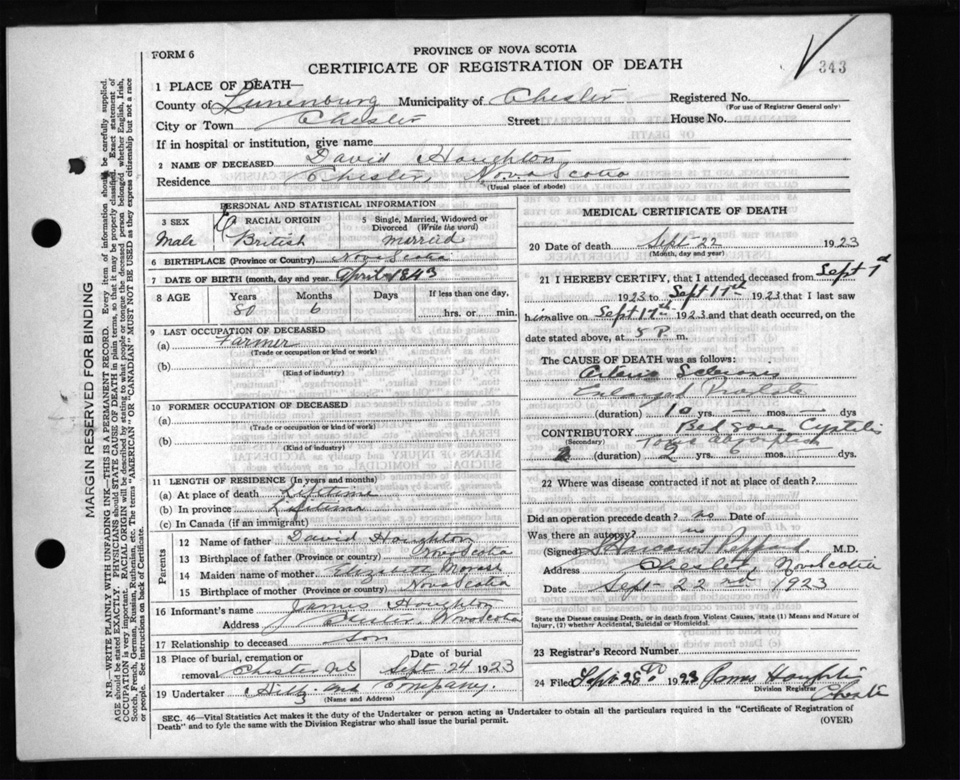 FORM 6
PROVINCE OF NOVA SCOTIA
CERTIFICATE OF REGISTRATION OF DEATH
343
1 PLACE OF DEATH—
County of Lunenburg Municipality of Chester Registered No.
(For use of Registrar General only)
City or Town Chester Street House No.
If in hospital or institution, give name
2 NAME OF DECEASED David Houghton
Residence Chester, Nova Scotia
(Usual place of abode)
PERSONAL AND STATISTICAL INFORMATION
3 SEX
Male
RACIAL ORIGIN
British
5 Single, Married, Widowed or Divorced (Write the word)
Married
6 BIRTHPLACE (Province or Country) Nova Scotia
7 DATE OF BIRTH (month, day and year) April 1843
8 AGE Years Months Days If less than one day,
80 6 hrs. or min.
9 LAST OCCUPATION OF DECEASED
(a) Farmer
(Trade or occupation or kind or work)
(b)
(Kind of industry)
10 FORMER OCCUPATION OF DECEASED
(a)
(Trade or occupation or kind of work)
(b)
(Kind of industry)
11 LENGTH OF RESIDENCE (In years and months)
(a) At place of death Lifetime
(b) In province Lifetime
(c) In Canada (if an immigrant)
Parents
12 Name of father David Houghton
13 Birthplace of father (Province or country) Nova Scotia
14 Maiden name of mother Elizabeth
15 Birthplace of mother (Province or country) Nova Scotia
16 Informant's name James Houghton
Address Chester Nova Scotia
17 Relationship to deceased son
18 Place of burial, cremation or removal Chester NS
Date of burial Sept. 24 1923
19 Undertaker and Company.
(Name and Address)
MEDICAL CERTIFICATE OF DEATH
20 Date of death Sept 22 1923
(Month, day and year)
21 I HEREBY CERTIFY, that I attended deceased from Sept 1st
1923 to Sept 17th 1923 that I last saw
him alive on Sept 17th 1923 and that death occurred, on
date stated above, at 5 P. m.
The CAUSE OF DEATH was as follows:
Arterio Sclerosis
Enlarged Prostate
(duration) 10 yrs. — mos. — dys
CONTRIBUTORY Bed sores Cystitis
(Secondary)
(duration) 2 yrs. mos. dys.
22 Where was disease contracted if not at place of death?
Did an operation precede death? no Date of
Was there an autopsy? no
(Signed) M.D.
Address Chester Nova Scotia
Date Sept 22nd 1923
State the Disease causing Death, or in death from Violent Causes, state (1) Means and Nature of Injury, (2) whether Accidental, Suicidal or Homicidal.
23 Registrar's Record Number
24 Filed Sept. 25 1923 James Houghton
Division Registrar
Chester
SEC. 46—Vital Statistics Act makes it the duty of the Undertaker or person acting as Undertaker to obtain all the particulars required in the "Certificate of Registration of
Death" and to fyle the same with the Division Registrar who shall issue the burial permit.
(OVER)
MARGIN RESERVED FOR BINDING
N.B.—WRITE PLAINLY WITH UNFADING INK—THIS IS A PERMANENT RECORD. Every item of information should be carefully supplied.
AGE should be stated EXACTLY. PHYSICIANS should STATE CAUSE OF DEATH in plain terms, so that it may be properly classified. Exact statement of
OCCUPATION is very important. RACIAL ORIGIN will be described by stating to what people or tongue the deceased person belonged whether English, Irish,
Scotch, French, German, Russian, Ruthenian, etc. The terms "AMERICAN" OR "CANADIAN" MUST NOT BE USED as they express citizenship but not a race
or people. See instructions on back of Certificate.